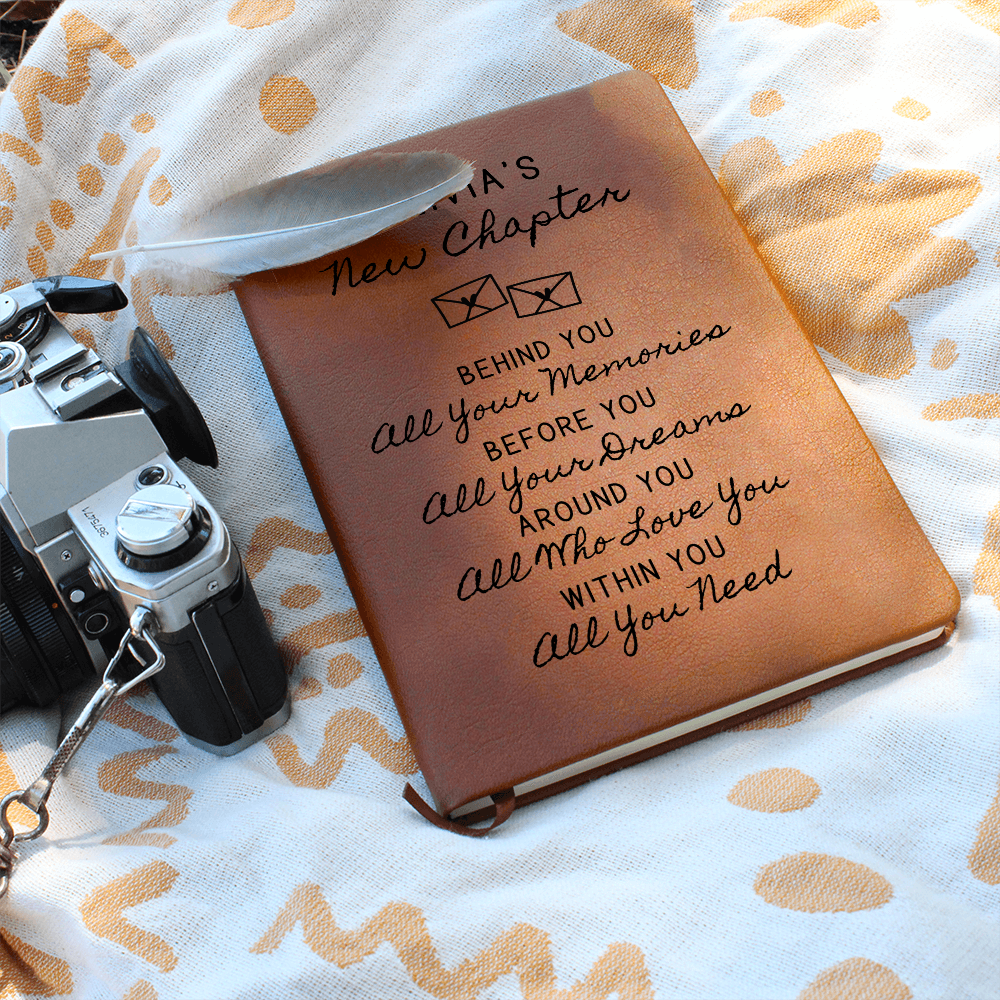 New Chapter
BEHIND YOU
All Your Memories
BEFORE YOU
All Your Dreams
AROUND YOU
All Who Love You
WITHIN YOU
All You Need
3675471